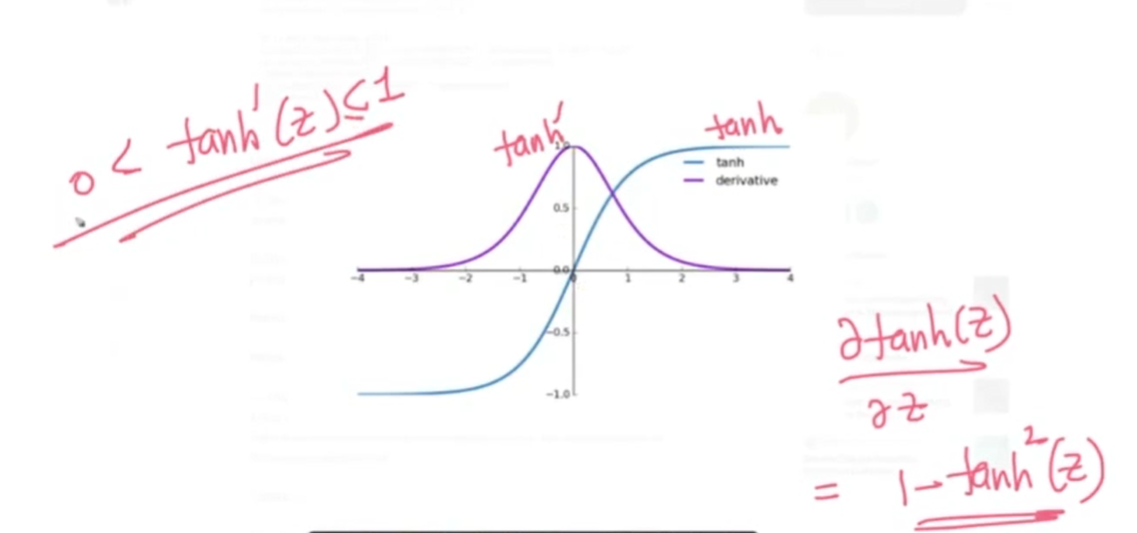 0 < tanh'(z) ≤ 1
tanh'
tanh
tanh
derivative
1.0
0.5
0.0
−4 −3 −2 −1 0 1 2 3 4
−0.5
−1.0
∂tanh(z)
∂z
= 1 − tanh²(z)